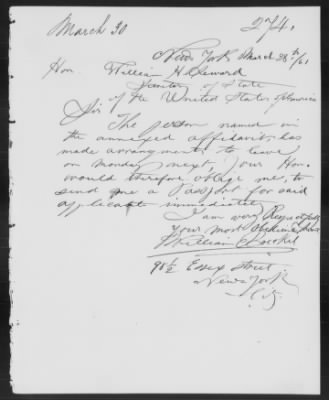 March 30 274.
New York March 28th/61
Hon. William H. Seward
of State
of the United States of America
Sir,
The person named in
the annexed affidavit, has
made arrangements to leave
on Monday next, Your Hon.
would therefore oblige me, to
send me a Passport for said
applicant immediately
I am very Respectfully
Your most Obedient
William
98½ Essex Street
New York
City.